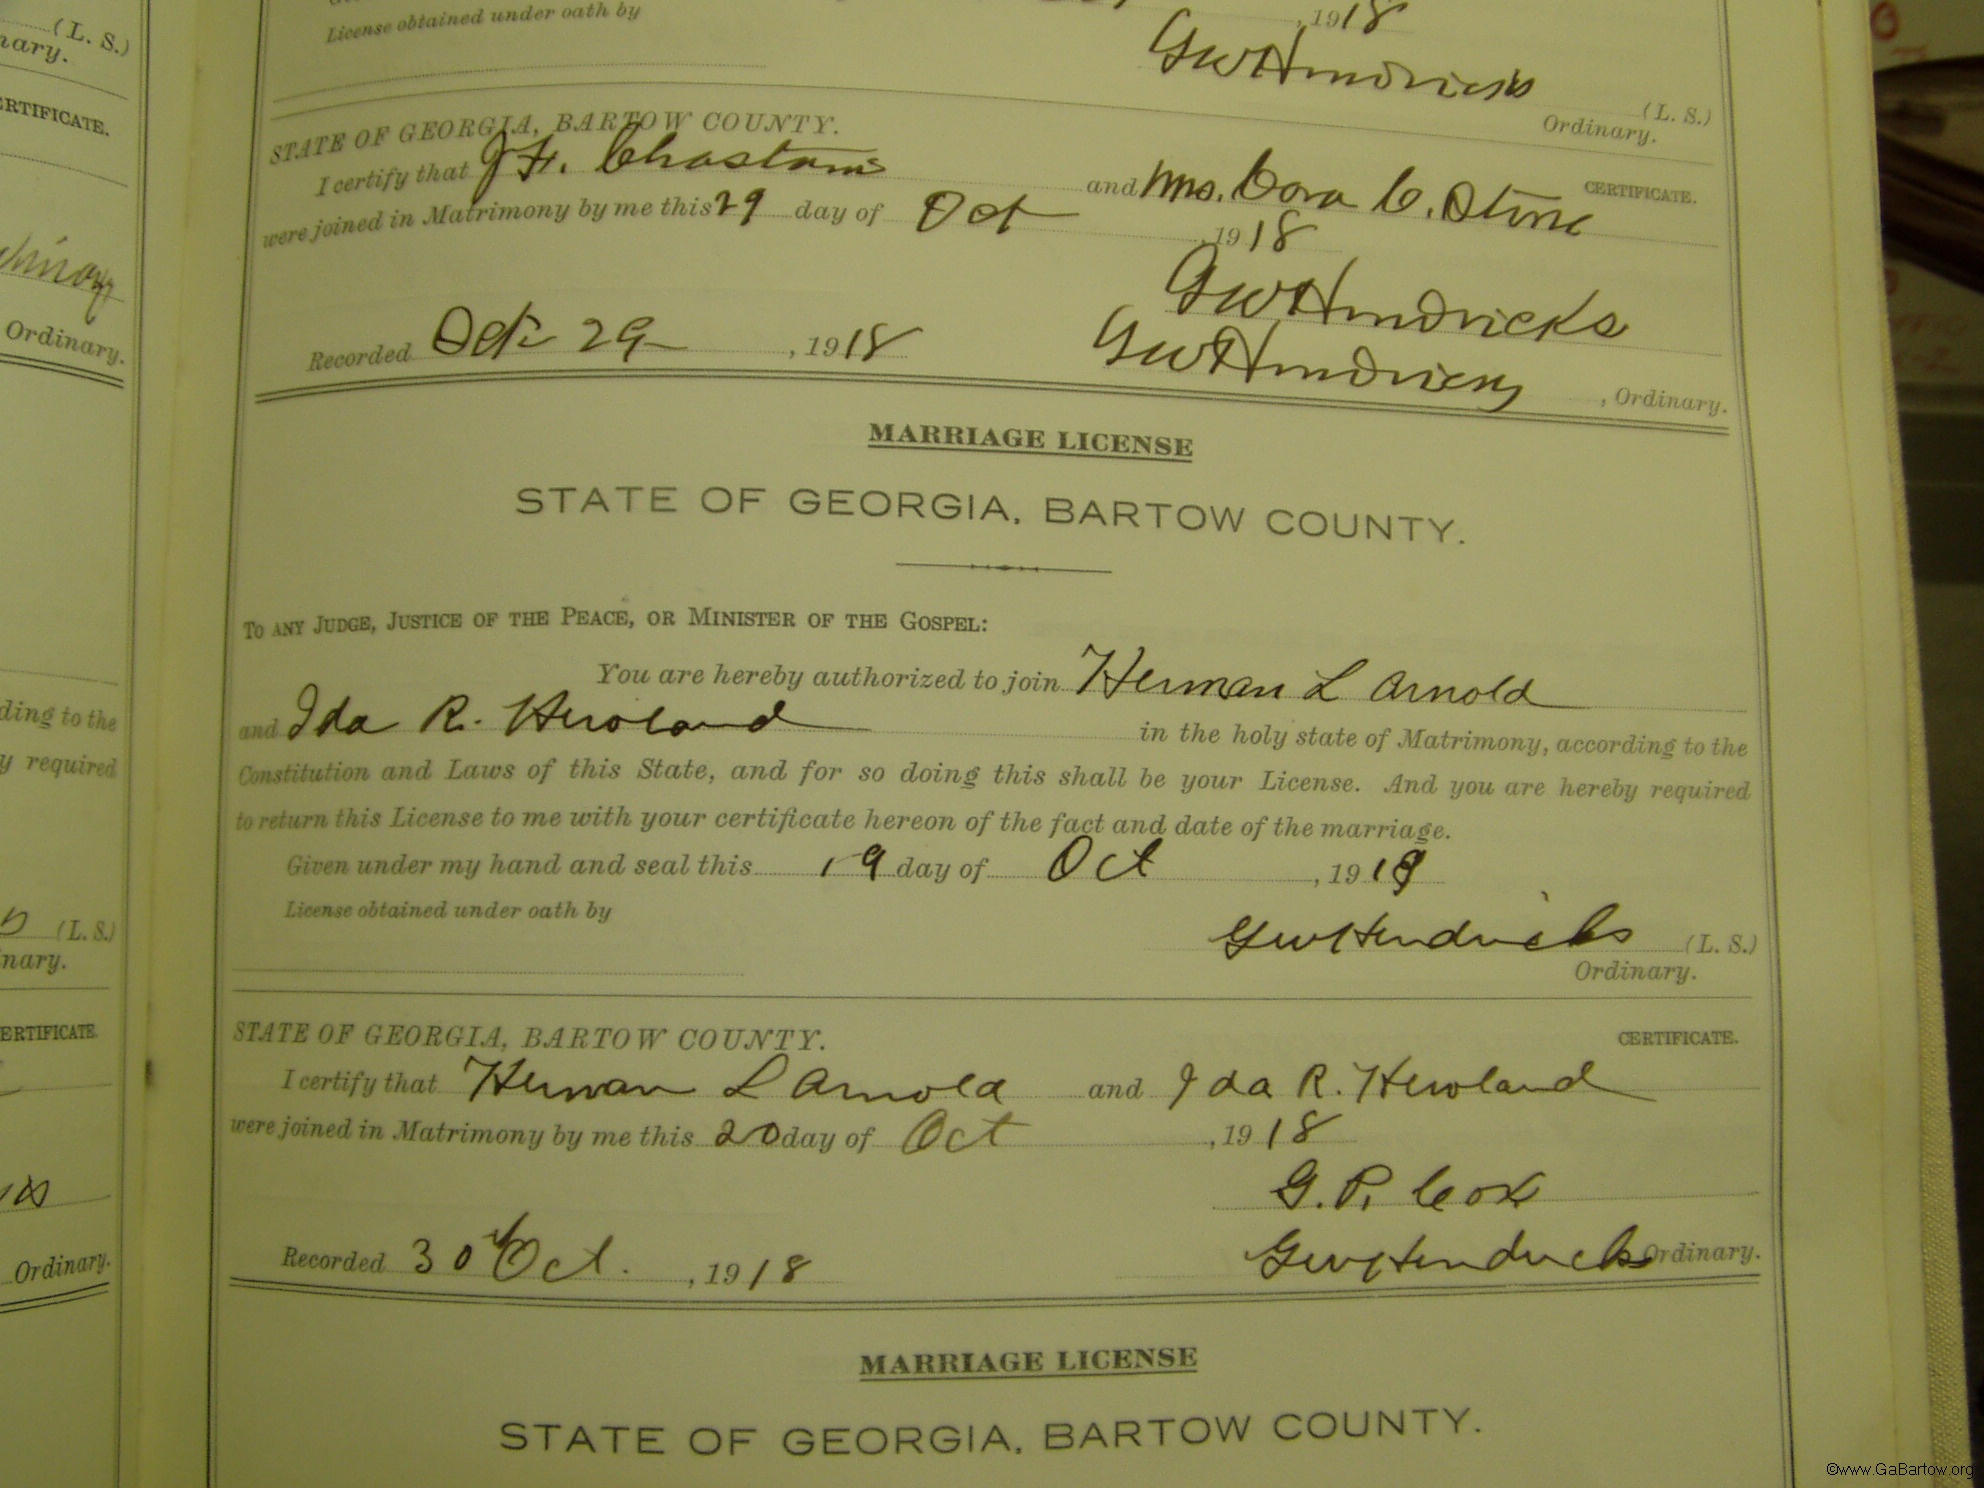 (L. S.)
nary.
ERTIFICATE.
Ordinary.
ding to the
y required
(L. S.)
nary.
ERTIFICATE.
Ordinary.
License obtained under oath by
, 1918
GW Hendricks
(L. S.)
Ordinary.
STATE OF GEORGIA, BARTOW COUNTY.
CERTIFICATE.
I certify that J. H. Chastain and Mrs. Cora C. Stone
were joined in Matrimony by me this 29 day of Oct , 1918
GW Hendricks
Recorded Oct 29 , 1918 GW Hendricks , Ordinary.
MARRIAGE LICENSE
STATE OF GEORGIA, BARTOW COUNTY.
TO ANY JUDGE, JUSTICE OF THE PEACE, OR MINISTER OF THE GOSPEL:
You are hereby authorized to join Herman L Arnold
and Ida R. Howland in the holy state of Matrimony, according to the
Constitution and Laws of this State, and for so doing this shall be your License. And you are hereby required
to return this License to me with your certificate hereon of the fact and date of the marriage.
Given under my hand and seal this 19 day of Oct , 1918
License obtained under oath by
GW Hendricks (L. S.)
Ordinary.
STATE OF GEORGIA, BARTOW COUNTY. CERTIFICATE.
I certify that Herman L Arnold and Ida R. Howland
were joined in Matrimony by me this 20 day of Oct , 1918
G. P. Cox
Recorded 30th Oct. , 1918 GW Hendricks Ordinary.
MARRIAGE LICENSE
STATE OF GEORGIA, BARTOW COUNTY.
©www.GaBartow.org